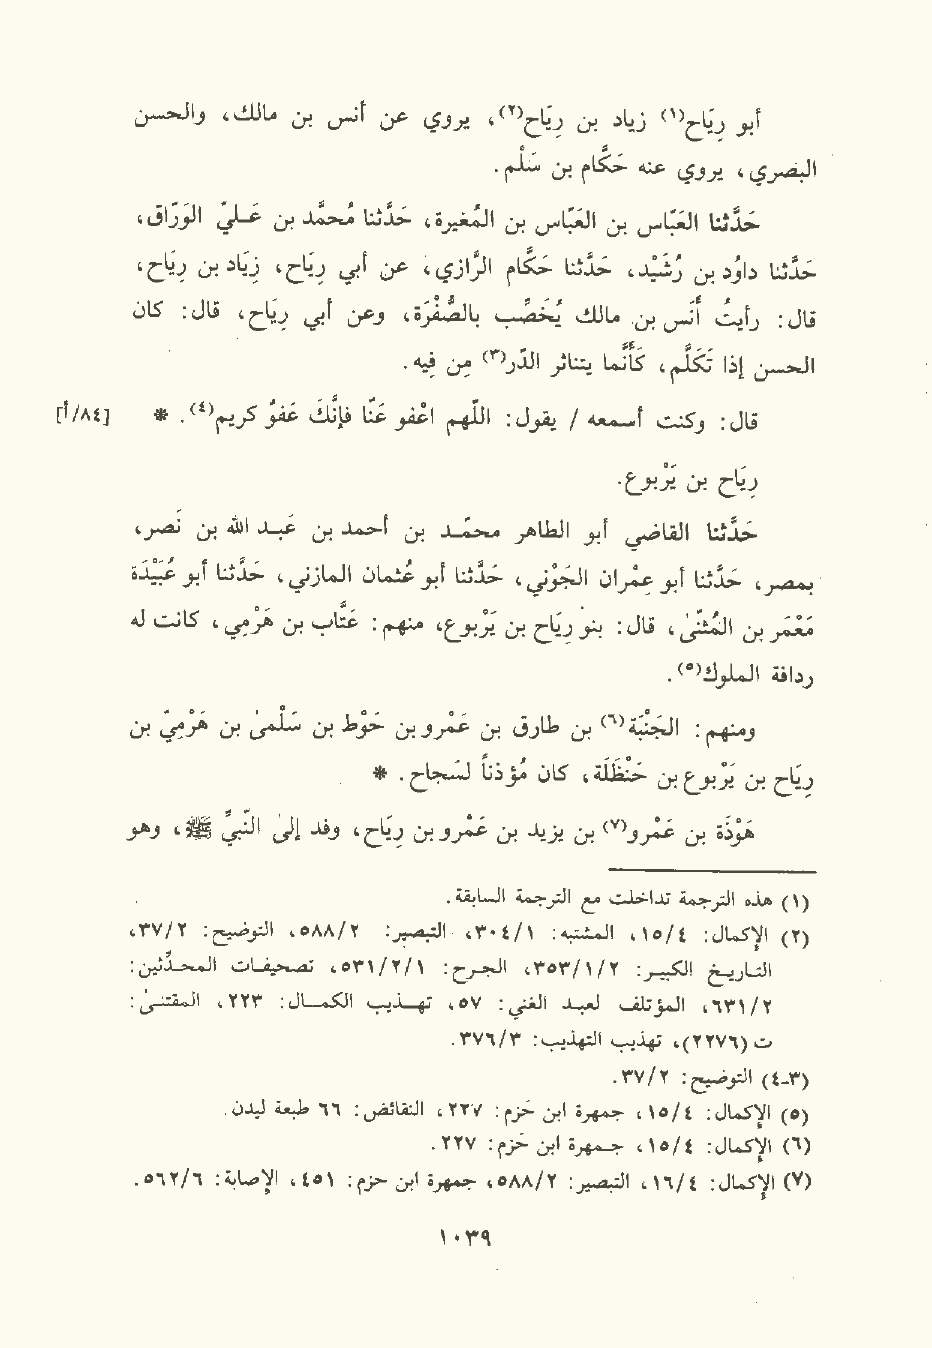 أبو رِيَاح(١) زياد بن رِيَاح(٢)، يروي عن أنس بن مالك، والحسن
البصري، يروي عنه حَكَّام بن سَلْم.
حَدَّثنا العَبَّاس بن العَبَّاس بن المُغيرة، حَدَّثنا مُحمَّد بن عَليّ الوَرَّاق،
حَدَّثنا داوُد بن رُشَيْد، حَدَّثنا حَكَّام الرَّازي، عن أبي رِيَاح، زِيَاد بن رِيَاح،
قال: رأيتُ أنَس بن مالك يُخَضِّب بالصُّفْرَة، وعن أبي رِيَاح، قال: كان
الحسن إذا تَكَلَّم، كأنَّما يتناثر الدَّر(٣) مِن فِيه.
قال: وكنت أسمعه / يقول: اللَّهم اعْفو عَنَّا فإنَّك عَفوٌ كريم(٤). * [٨٤/أ]
رِيَاح بن يَرْبوع.
حَدَّثنا القاضي أبو الطاهر محمَّد بن أحمد بن عَبد الله بن نَصر،
بمصر، حَدَّثنا أبو عِمْران الجَوْني، حَدَّثنا أبو عُثمان المازني، حَدَّثنا أبو عُبَيْدَة
مَعْمَر بن المُثنَّىٰ، قال: بنو رِيَاح بن يَرْبوع، منهم: عَتَّاب بن هَرْمِي، كانت له
رِدافة الملوك(٥).
ومنهم: الجَنْبَة(٦) بن طارق بن عَمْرو بن حَوْط بن سَلْمىٰ بن هَرْمِيّ بن
رِيَاح بن يَرْبوع بن حَنْظَلَة، كان مُؤذناً لسَجاح. *
هَوْذَة بن عَمْرو(٧) بن يزيد بن عَمْرو بن رِيَاح، وفد إلىٰ النَّبيِّ ﷺ، وهو
(١) هذه الترجمة تداخلت مع الترجمة السابقة.
(٢) الإكمال: ١٥/٤، المشتبه: ٣٠٤/١، التبصير: ٥٨٨/٢، التوضيح: ٣٧/٢،
التاريخ الكبير: ٣٥٣/١/٢، الجرح: ٥٣١/٢/١، تصحيفات المحدِّثين:
٦٣١/٢، المؤتلف لعبد الغني: ٥٧، تهذيب الكمال: ٢٢٣، المقتنىٰ:
ت (٢٢٧٦)، تهذيب التهذيب: ٣٧٦/٣.
(٣-٤) التوضيح: ٣٧/٢.
(٥) الإكمال: ١٥/٤، جمهرة ابن حَزم: ٢٢٧، النقائض: ٦٦ طبعة ليدن.
(٦) الإكمال: ١٥/٤، جمهرة ابن حَزم: ٢٢٧.
(٧) الإكمال: ١٦/٤، التبصير: ٥٨٨/٢، جمهرة ابن حزم: ٤٥١، الإصابة: ٥٦٢/٦.
١٠٣٩